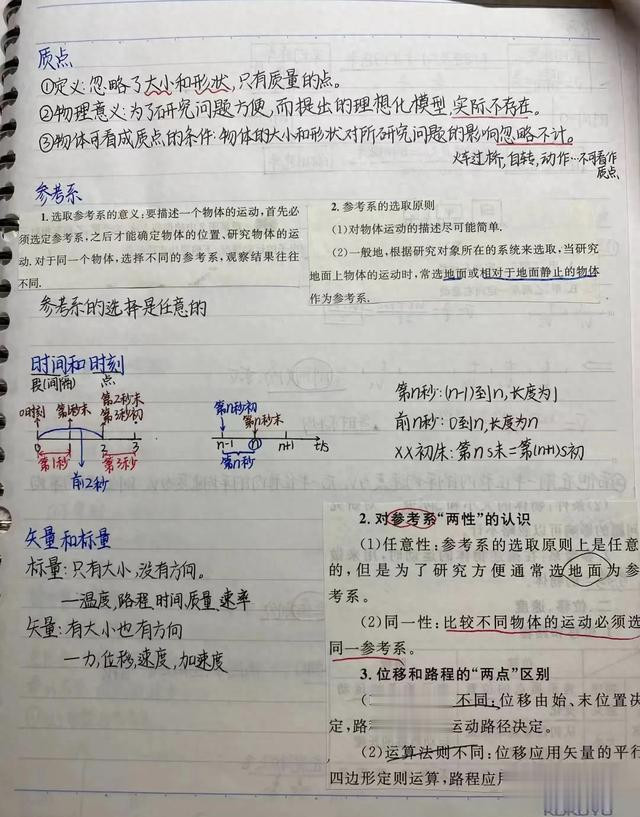 质点
①定义:忽略了大小和形状,只有质量的点。
②物理意义:为了研究问题方便,而提出的理想化模型,实际不存在。
③物体可看成质点的条件:物体的大小和形状对所研究问题的影响忽略不计。
火车过桥,自转,动作…不可看作
质点
参考系
1. 选取参考系的意义:要描述一个物体的运动,首先必
须选定参考系,之后才能确定物体的位置、研究物体的运
动.对于同一个物体,选择不同的参考系,观察结果往往
不同.
2. 参考系的选取原则
(1)对物体运动的描述尽可能简单.
(2)一般地,根据研究对象所在的系统来选取,当研究
地面上物体的运动时,常选地面或相对于地面静止的物体
作为参考系.
参考系的选择是任意的
时间和时刻
段(间隔) 点
0时刻 第1秒末 第2秒末
第3秒初
0 1 2 3
第1秒 第3秒
前2秒
第n秒初
第n秒末
n-1 n n+1 t/s
第n秒
第n秒:(n-1)到n,长度为1
前n秒:0到n,长度为n
××初/末:第n s末=第(n+1)s初
矢量和标量
标量:只有大小,没有方向。
—温度,路程,时间,质量,速率
矢量:有大小也有方向
—力,位移,速度,加速度
2. 对参考系“两性”的认识
(1)任意性:参考系的选取原则上是任意
的,但是为了研究方便通常选地面为参
考系。
(2)同一性:比较不同物体的运动必须选
同一参考系。
3. 位移和路程的“两点”区别
不同:位移由始、末位置决
定,路 运动路径决定。
(2)运算法则不同:位移应用矢量的平行
四边形定则运算,路程应